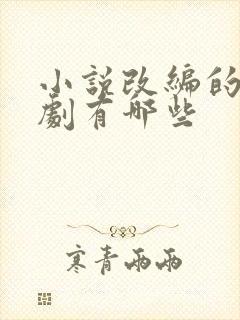 小說改編的
劇有哪些
寒青兩兩